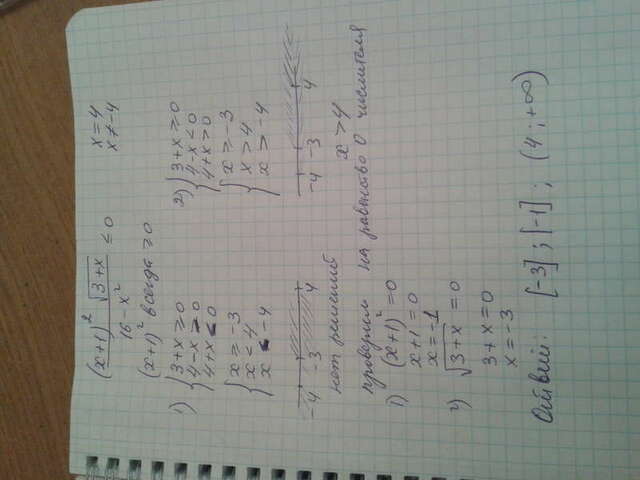 (x+1)² √(3+x) / (16-x²) ≤ 0
x=4
x≠-4
(x+1)² всегда ≥0
1) { 3+x ≥ 0
4-x > 0
4+x < 0
{ x ≥ -3
x < 4
x < -4
-4 -3 4
нет решений
2) { 3+x ≥ 0
4-x < 0
4+x > 0
{ x ≥ -3
x > 4
x > -4
-4 -3 4
x > 4
проверим на равенство 0 числителя
1) (x+1)² = 0
x+1 = 0
x = -1
2) √(3+x) = 0
3+x = 0
x = -3
Ответ: [-3] ; [-1] ; (4 ; +∞)